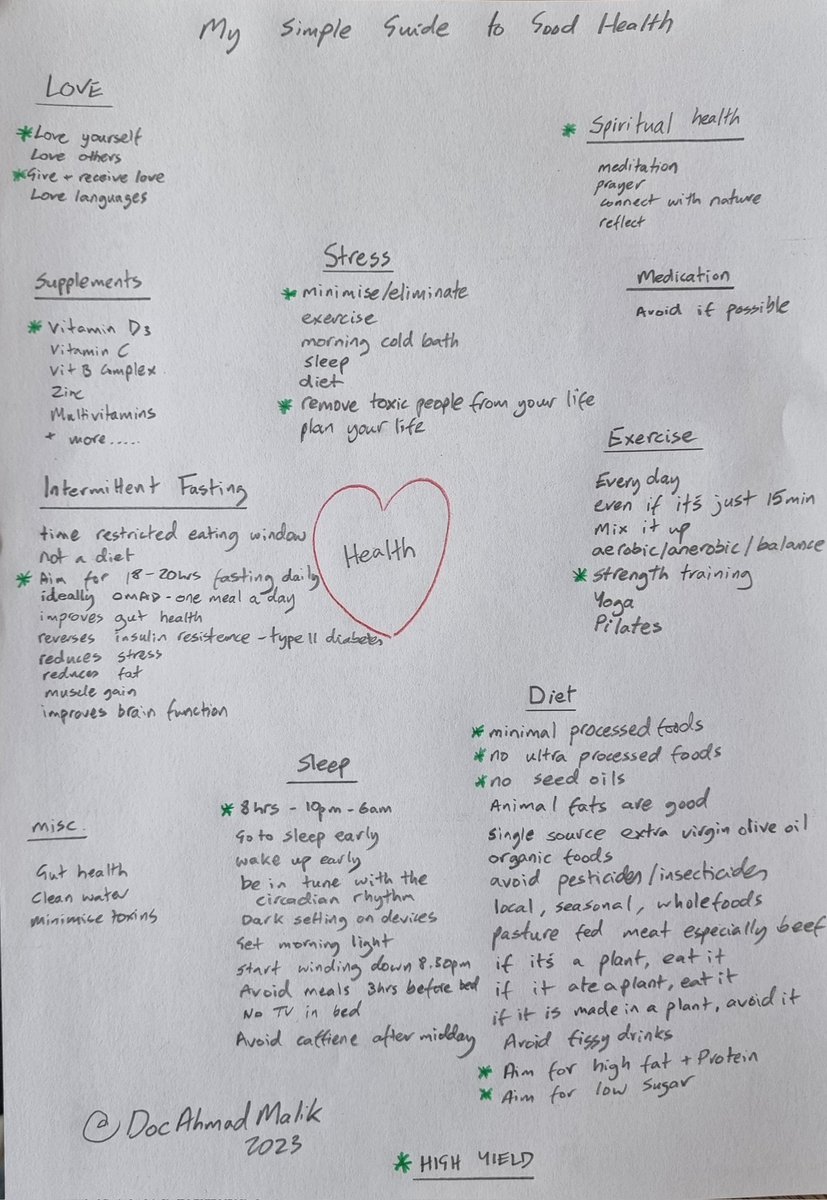 My Simple Guide to Good Health
LOVE
*Love yourself
Love others
*Give + receive love
Love languages
* Spiritual health
meditation
prayer
connect with nature
reflect
Supplements
* Vitamin D3
Vitamin C
Vit B Complex
Zinc
Multivitamins
+ more.....
Stress
* minimise/eliminate
exercise
morning cold bath
sleep
diet
* remove toxic people from your life
plan your life
Medication
Avoid if possible
Exercise
Every day
even if it's just 15min
Mix it up
aerobic/anerobic/balance
* strength training
Yoga
Pilates
Intermittent Fasting
time restricted eating window
not a diet
* Aim for 18-20hrs fasting daily
ideally OMAD - one meal a day
improves gut health
reverses insulin resistence - type II diabetes
reduces stress
reduces fat
muscle gain
improves brain function
Health
Diet
* minimal processed foods
* no ultra processed foods
* no seed oils
Animal fats are good
single source extra virgin olive oil
organic foods
avoid pesticides/insecticides
local, seasonal, wholefoods
pasture fed meat especially beef
if it's a plant, eat it
if it ate a plant, eat it
if it is made in a plant, avoid it
Avoid fissy drinks
* Aim for high fat + Protein
* Aim for low sugar
Sleep
* 8hrs - 10pm - 6am
Go to sleep early
wake up early
be in tune with the
circadian rhythm
Dark setting on devices
Get morning light
start winding down 8.30pm
Avoid meals 3hrs before bed
No TV in bed
Avoid caffiene after midday
misc.
Gut health
Clean water
minimise toxins
@DocAhmadMalik
2023
* HIGH YIELD